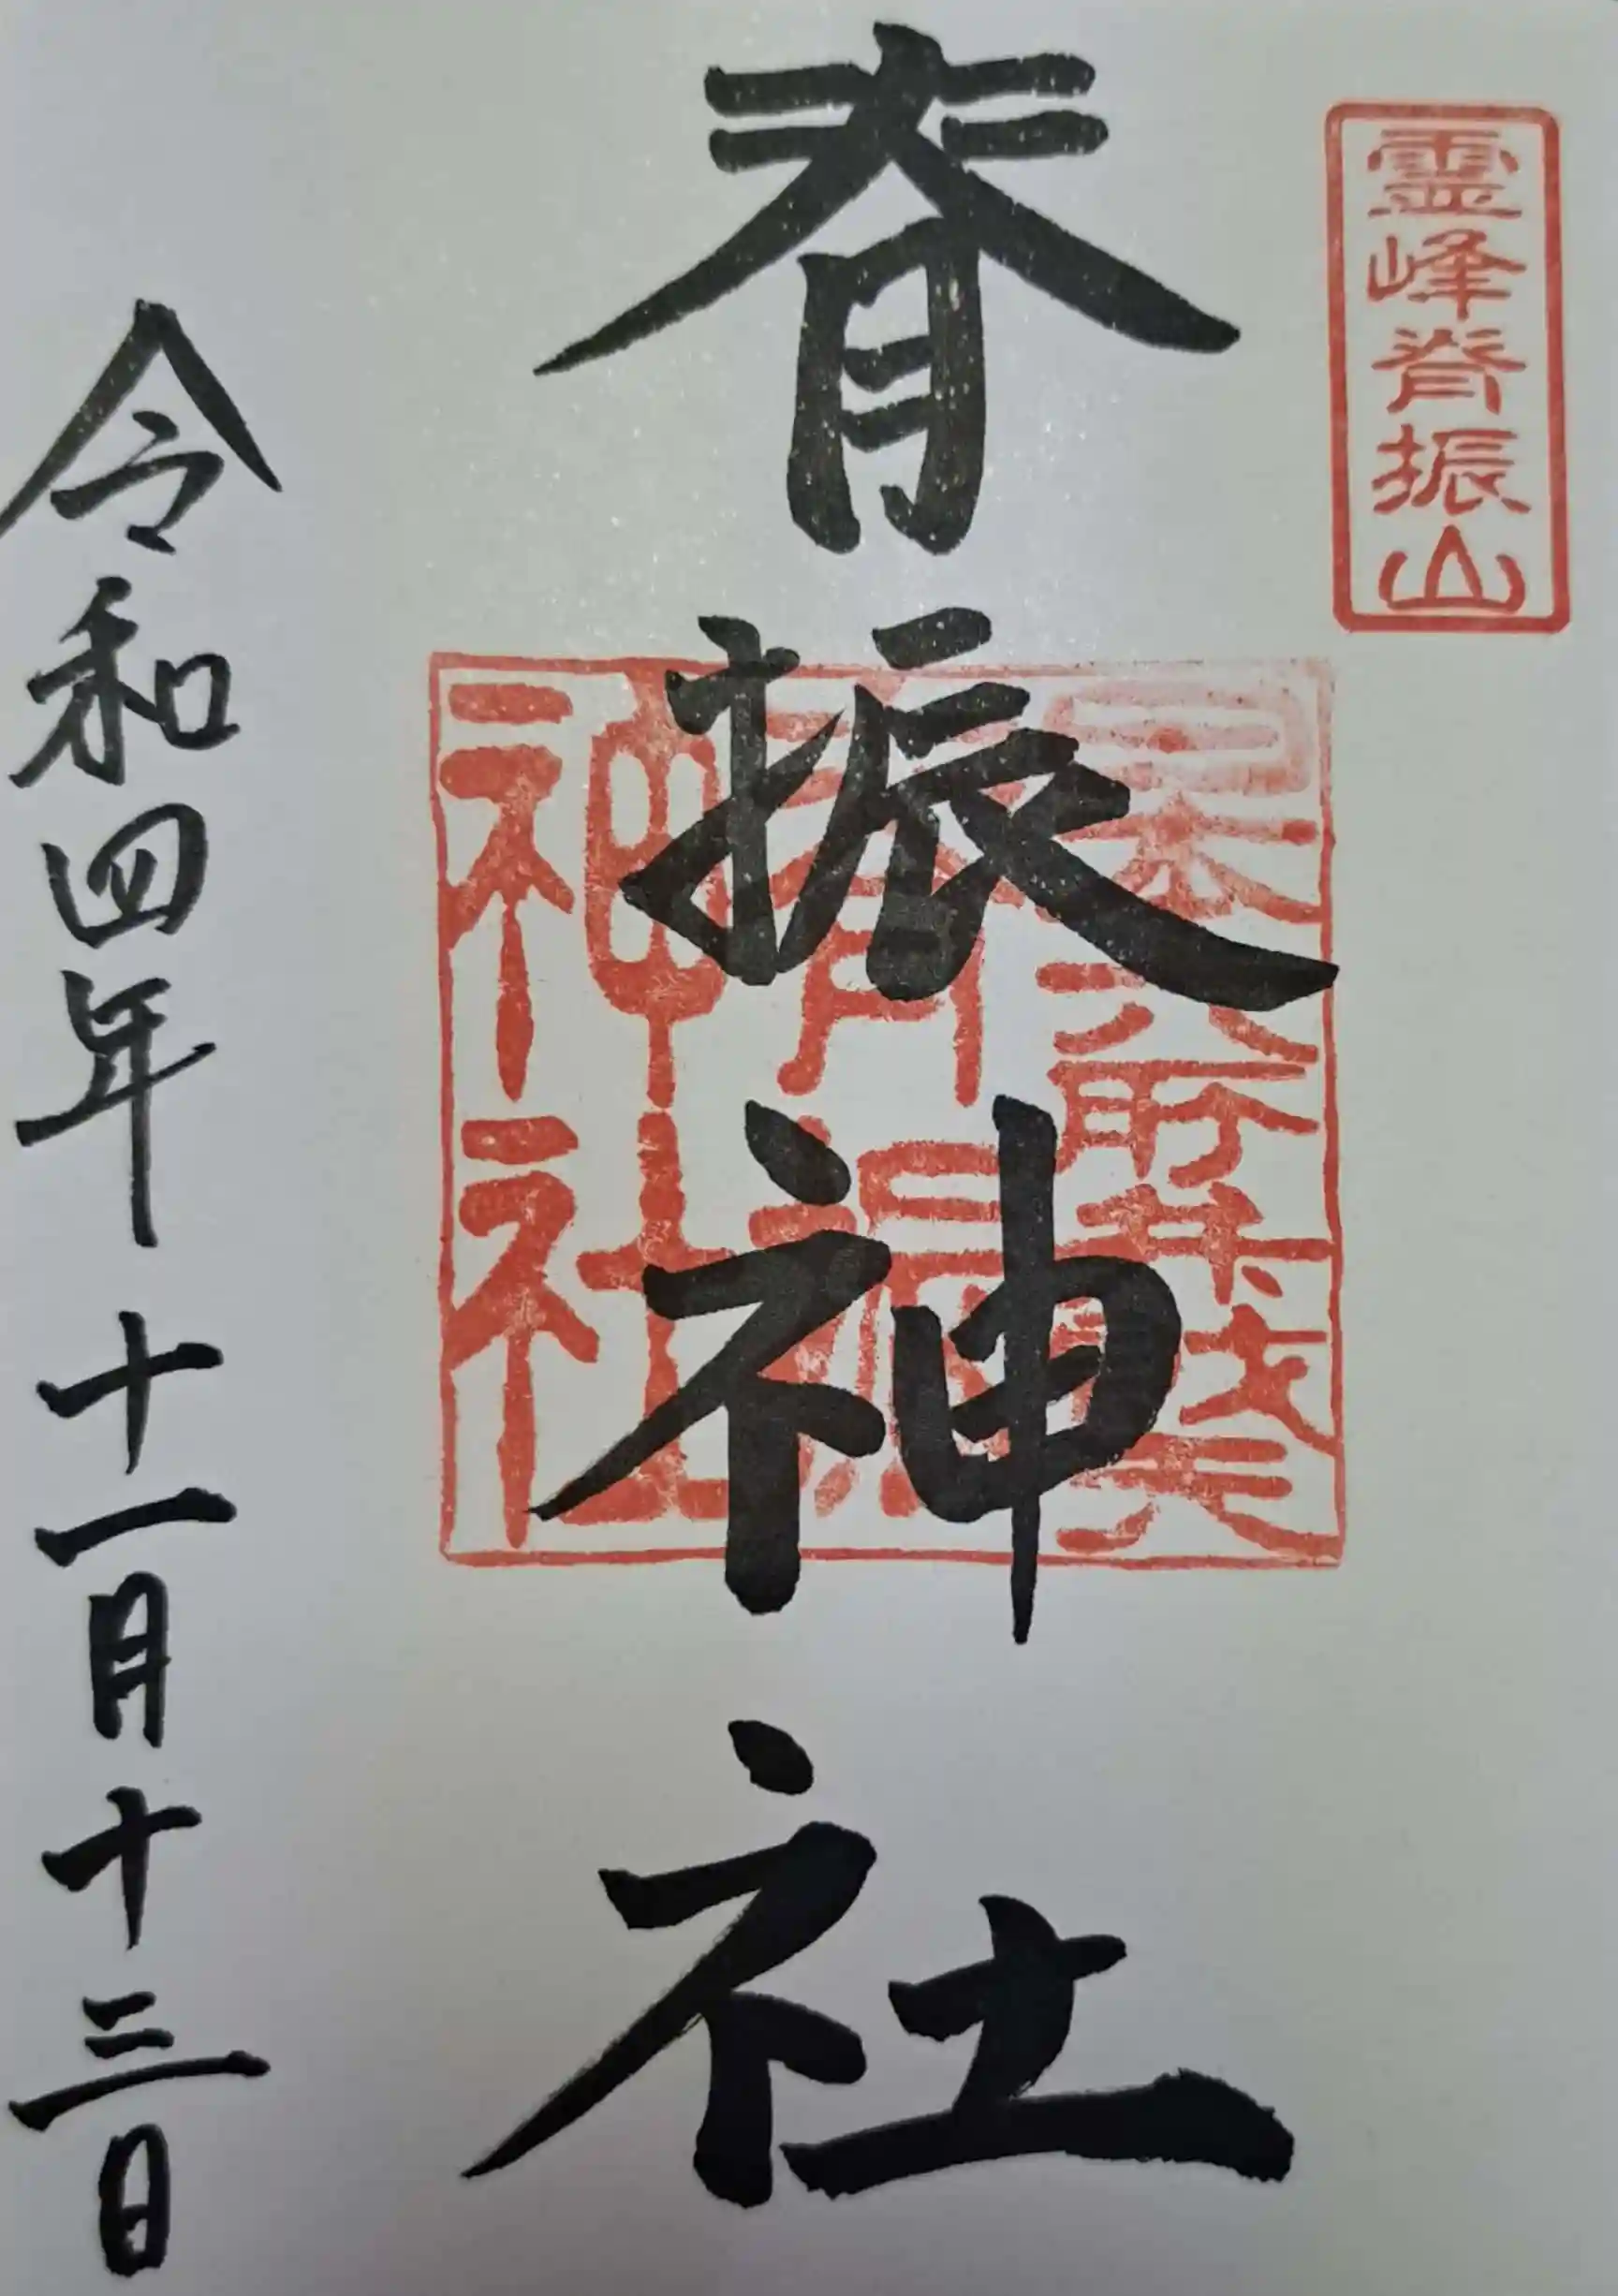 霊峰脊振山
脊振神社
脊振神社
令和四年十一月十三日